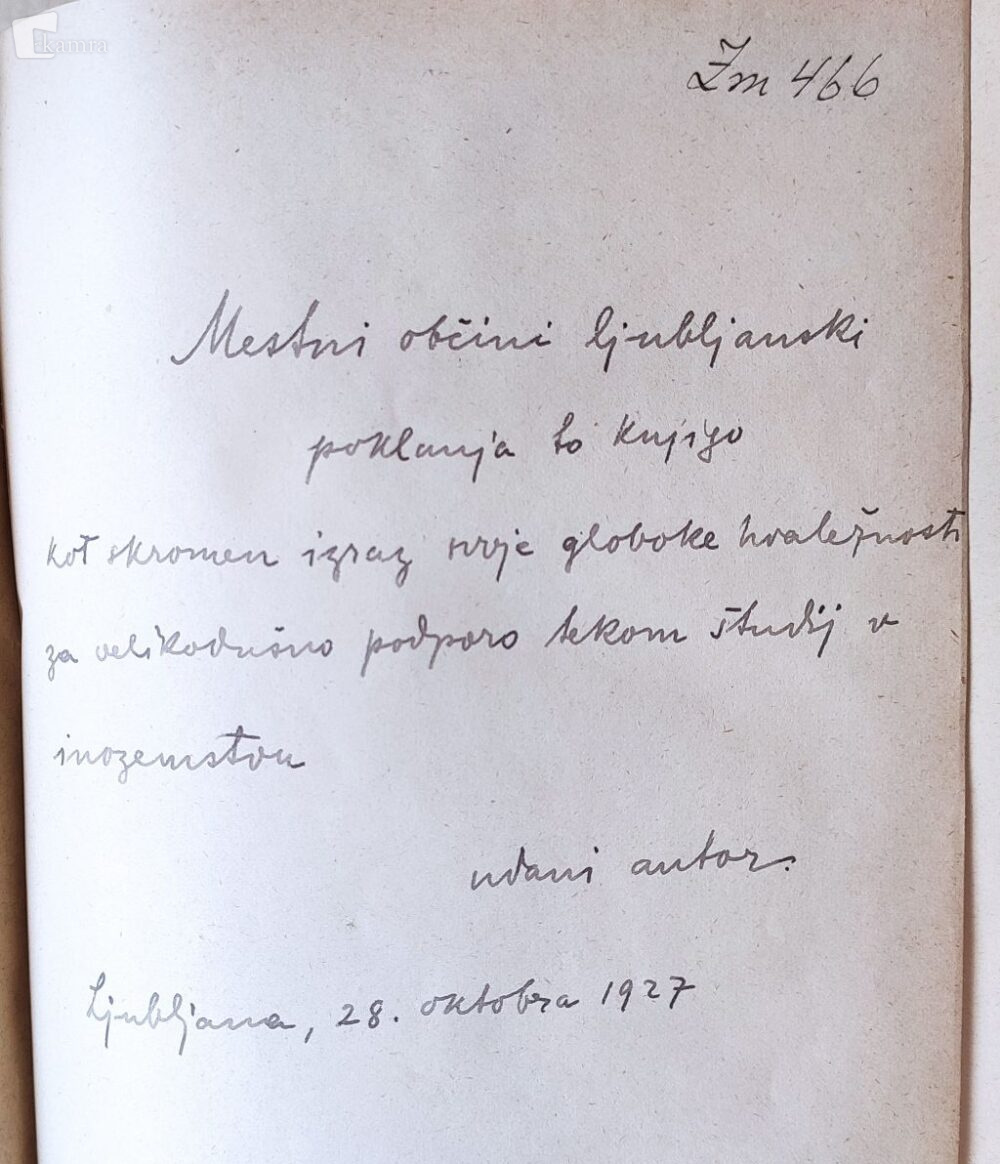 kamra
Žm 466
Mestni občini ljubljanski
poklanja to knjigo
kot skromen izraz svoje globoke hvaležnosti
za velikodušno podporo tekom študij v
inozemstvu
udani autor.
Ljubljana, 28. oktobra 1927